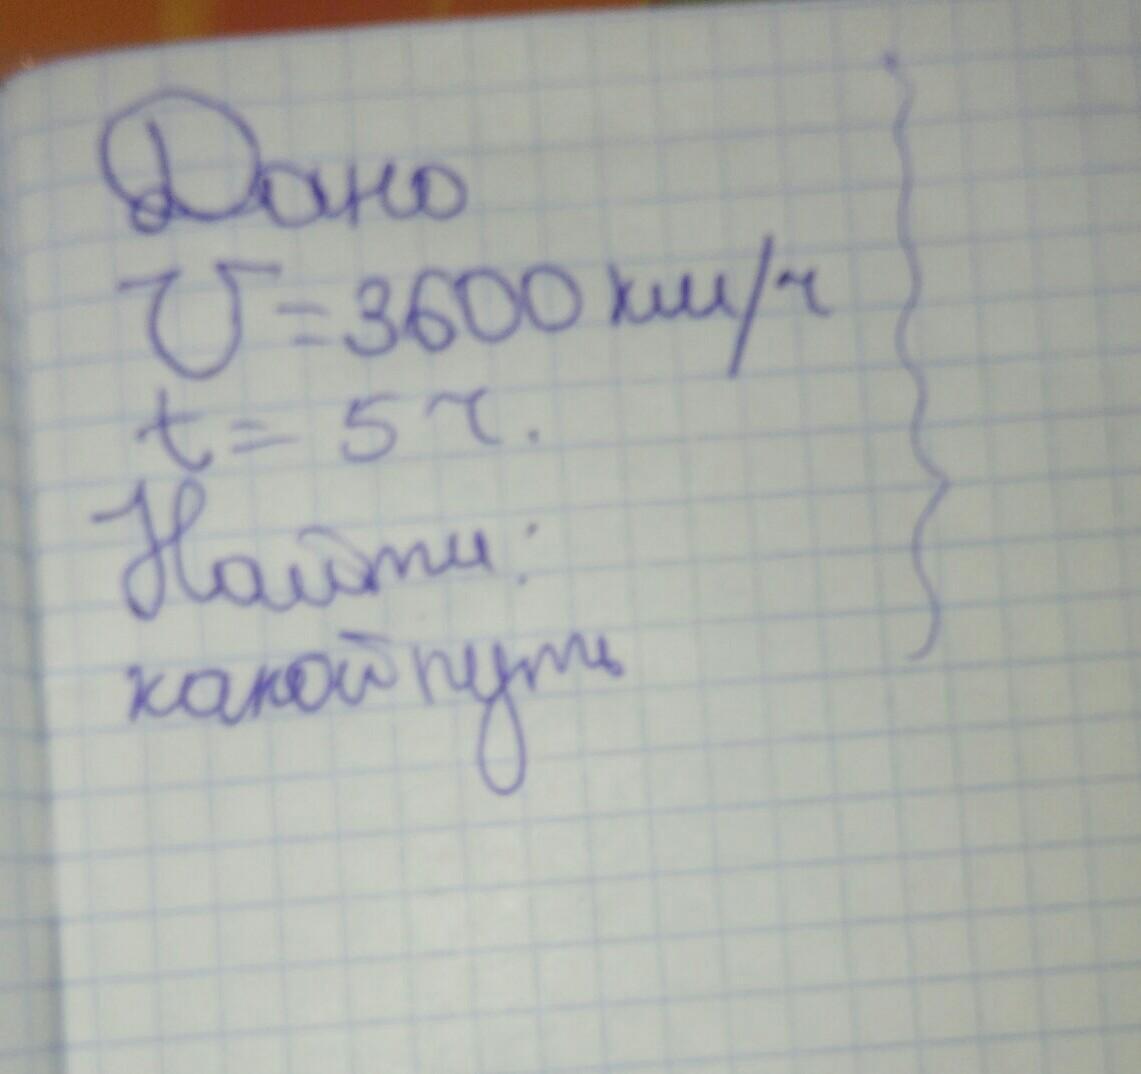 Дано
V=3600 км/ч
t= 5 ч.
Найти:
какой путь